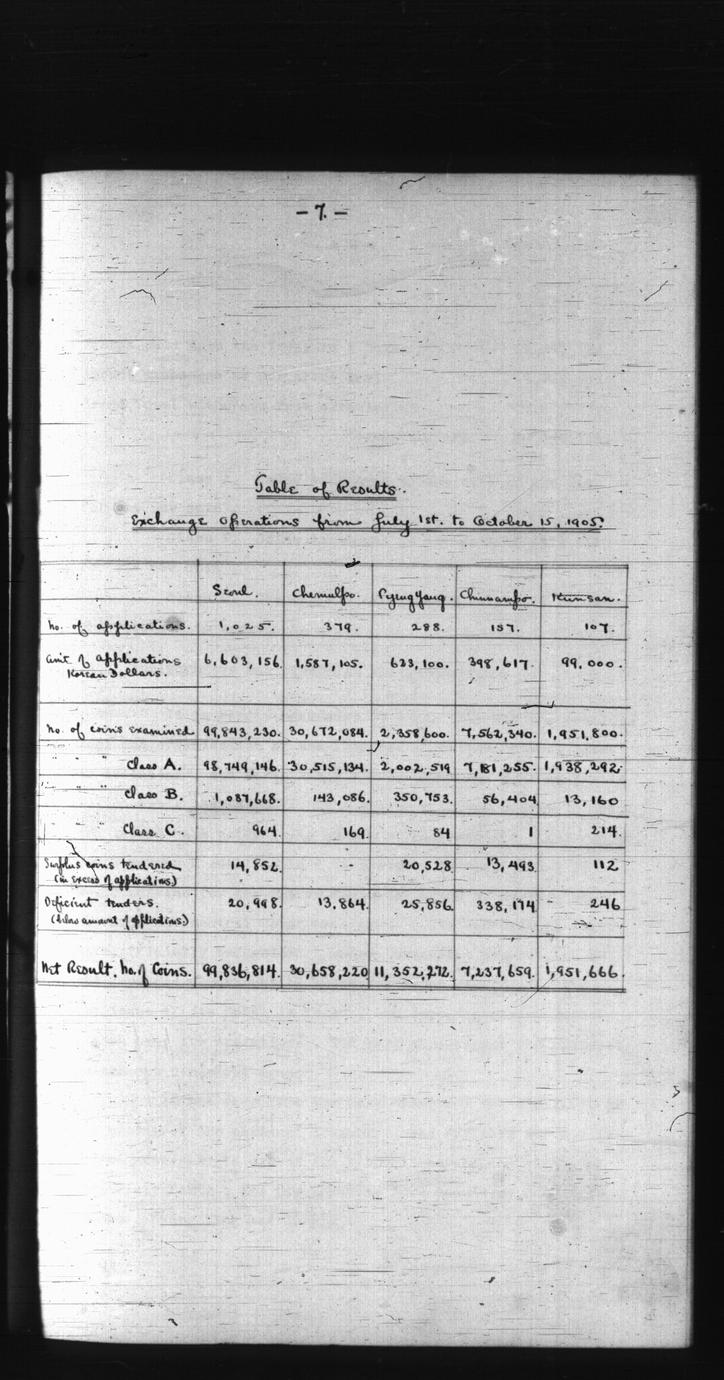 - 7. -
Table of Results.
Exchange Operations from July 1st. to October 15, 1905.
Seoul. Chemulpo. Pyengyang. Chinnampo. Kunsan.
No. of applications. 1,025. 379. 288. 157. 107.
Amt. of applications 6,603,156. 1,587,105. 623,100. 398,617. 99,000.
Korean Dollars.
No. of coins examined 99,843,230. 30,672,084. 2,358,600. 7,562,340. 1,951,800.
" " " Class A. 98,749,146. 30,515,134. 2,002,519 7,181,255. 1,938,292.
" " " Class B. 1,087,668. 143,086. 350,753. 56,404 13,160
" " Class C. 964. 169. 84 1 214.
Surplus coins tendered 14,852. - 20,528 13,493 112
(in excess of applications)
Deficient tenders. 20,998. 13,864. 25,856 338,174 246
(below amount of applications.)
Net Result, No. of Coins. 99,836,814. 30,658,220 11,352,272. 7,237,659. 1,951,666.